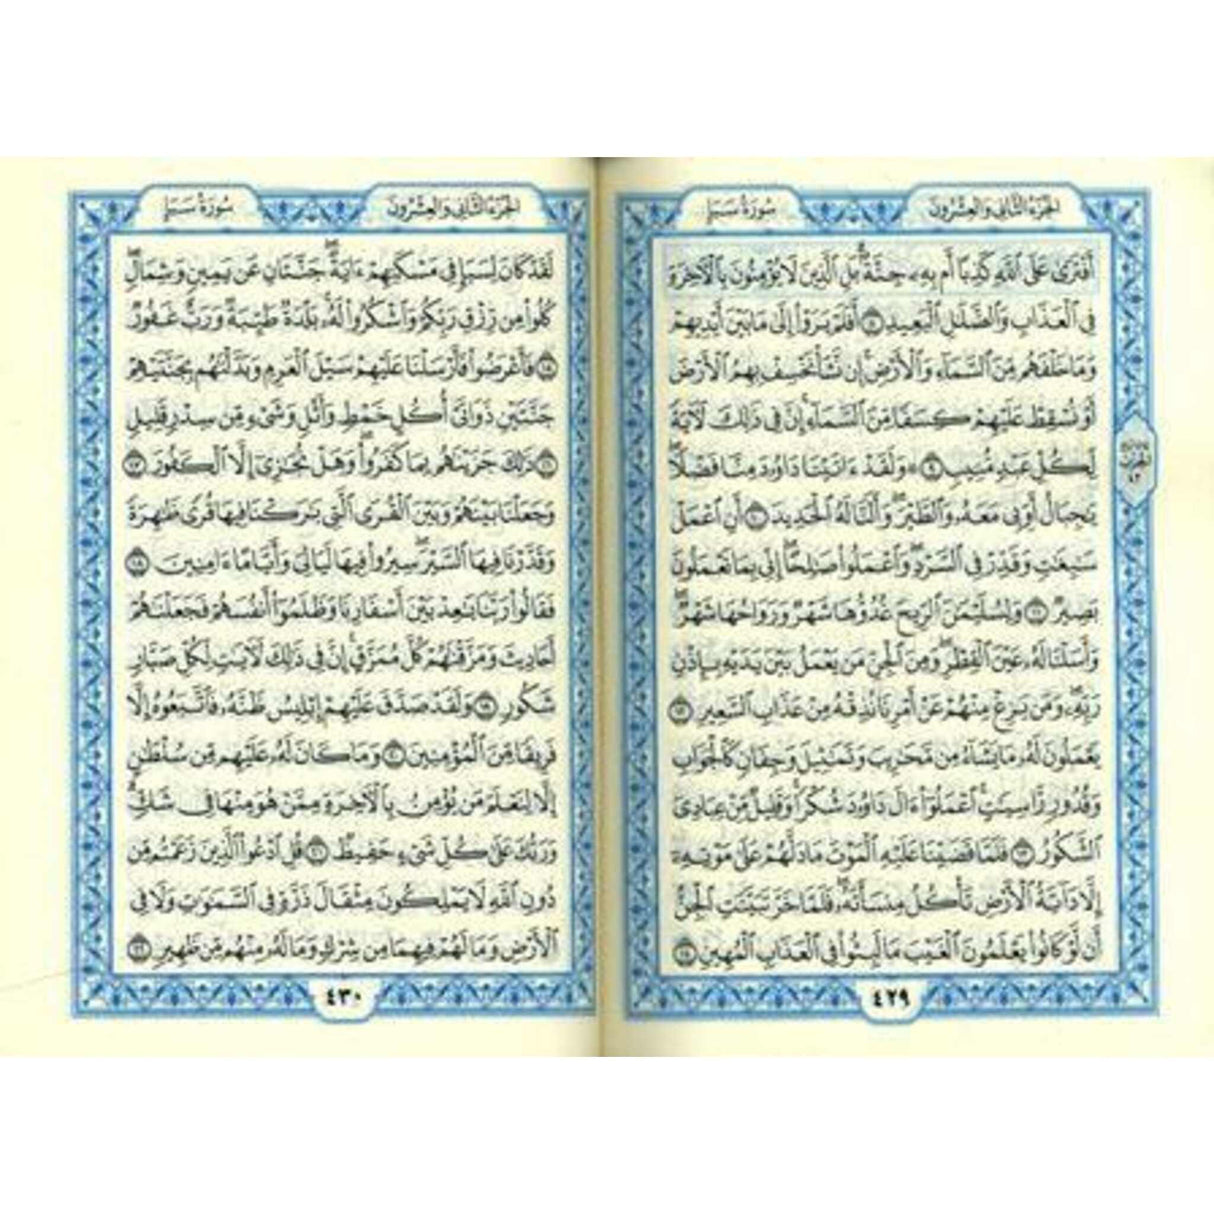 الجزء الثاني والعشرون
سورة سبإ
أَفْتَرَىٰ عَلَى ٱللَّهِ كَذِبًا أَم بِهِۦ جِنَّةٌۢ بَلِ ٱلَّذِينَ لَا يُؤْمِنُونَ بِٱلْـَٔاخِرَةِ
فِى ٱلْعَذَابِ وَٱلضَّلَـٰلِ ٱلْبَعِيدِ ٨ أَفَلَمْ يَرَوْا۟ إِلَىٰ مَا بَيْنَ أَيْدِيهِمْ
وَمَا خَلْفَهُم مِّنَ ٱلسَّمَآءِ وَٱلْأَرْضِ إِن نَّشَأْ نَخْسِفْ بِهِمُ ٱلْأَرْضَ
أَوْ نُسْقِطْ عَلَيْهِمْ كِسَفًا مِّنَ ٱلسَّمَآءِ إِنَّ فِى ذَٰلِكَ لَـَٔايَةً
لِّكُلِّ عَبْدٍ مُّنِيبٍ ٩ ۞ وَلَقَدْ ءَاتَيْنَا دَاوُۥدَ مِنَّا فَضْلًا
يَـٰجِبَالُ أَوِّبِى مَعَهُۥ وَٱلطَّيْرَ وَأَلَنَّا لَهُ ٱلْحَدِيدَ ١٠ أَنِ ٱعْمَلْ
سَـٰبِغَـٰتٍ وَقَدِّرْ فِى ٱلسَّرْدِ وَٱعْمَلُوا۟ صَـٰلِحًا إِنِّى بِمَا تَعْمَلُونَ
بَصِيرٌ ١١ وَلِسُلَيْمَـٰنَ ٱلرِّيحَ غُدُوُّهَا شَهْرٌ وَرَوَاحُهَا شَهْرٌ
وَأَسَلْنَا لَهُۥ عَيْنَ ٱلْقِطْرِ وَمِنَ ٱلْجِنِّ مَن يَعْمَلُ بَيْنَ يَدَيْهِ بِإِذْنِ
رَبِّهِۦ وَمَن يَزِغْ مِنْهُمْ عَنْ أَمْرِنَا نُذِقْهُ مِنْ عَذَابِ ٱلسَّعِيرِ ١٢
يَعْمَلُونَ لَهُۥ مَا يَشَآءُ مِن مَّحَـٰرِيبَ وَتَمَـٰثِيلَ وَجِفَانٍ كَٱلْجَوَابِ
وَقُدُورٍ رَّاسِيَـٰتٍ ٱعْمَلُوٓا۟ ءَالَ دَاوُۥدَ شُكْرًا وَقَلِيلٌ مِّنْ عِبَادِىَ
ٱلشَّكُورُ ١٣ فَلَمَّا قَضَيْنَا عَلَيْهِ ٱلْمَوْتَ مَا دَلَّهُمْ عَلَىٰ مَوْتِهِۦٓ
إِلَّا دَآبَّةُ ٱلْأَرْضِ تَأْكُلُ مِنسَأَتَهُۥ فَلَمَّا خَرَّ تَبَيَّنَتِ ٱلْجِنُّ
أَن لَّوْ كَانُوا۟ يَعْلَمُونَ ٱلْغَيْبَ مَا لَبِثُوا۟ فِى ٱلْعَذَابِ ٱلْمُهِينِ ١٤
٤٢٩
الجزء الثاني والعشرون
سورة سبإ
لَقَدْ كَانَ لِسَبَإٍ فِى مَسْكَنِهِمْ ءَايَةٌ جَنَّتَانِ عَن يَمِينٍ وَشِمَالٍ
كُلُوا۟ مِن رِّزْقِ رَبِّكُمْ وَٱشْكُرُوا۟ لَهُۥ بَلْدَةٌ طَيِّبَةٌ وَرَبٌّ غَفُورٌ
١٥ فَأَعْرَضُوا۟ فَأَرْسَلْنَا عَلَيْهِمْ سَيْلَ ٱلْعَرِمِ وَبَدَّلْنَـٰهُم بِجَنَّتَيْهِمْ
جَنَّتَيْنِ ذَوَاتَىْ أُكُلٍ خَمْطٍ وَأَثْلٍ وَشَىْءٍ مِّن سِدْرٍ قَلِيلٍ
١٦ ذَٰلِكَ جَزَيْنَـٰهُم بِمَا كَفَرُوا۟ وَهَلْ نُجَـٰزِىٓ إِلَّا ٱلْكَفُورَ ١٧
وَجَعَلْنَا بَيْنَهُمْ وَبَيْنَ ٱلْقُرَى ٱلَّتِى بَـٰرَكْنَا فِيهَا قُرًى ظَـٰهِرَةً
وَقَدَّرْنَا فِيهَا ٱلسَّيْرَ سِيرُوا۟ فِيهَا لَيَالِىَ وَأَيَّامًا ءَامِنِينَ ١٨
فَقَالُوا۟ رَبَّنَا بَـٰعِدْ بَيْنَ أَسْفَارِنَا وَظَلَمُوٓا۟ أَنفُسَهُمْ فَجَعَلْنَـٰهُمْ
أَحَادِيثَ وَمَزَّقْنَـٰهُمْ كُلَّ مُمَزَّقٍ إِنَّ فِى ذَٰلِكَ لَـَٔايَـٰتٍ لِّكُلِّ صَبَّارٍ
شَكُورٍ ١٩ وَلَقَدْ صَدَّقَ عَلَيْهِمْ إِبْلِيسُ ظَنَّهُۥ فَٱتَّبَعُوهُ إِلَّا
فَرِيقًا مِّنَ ٱلْمُؤْمِنِينَ ٢٠ وَمَا كَانَ لَهُۥ عَلَيْهِم مِّن سُلْطَـٰنٍ
إِلَّا لِنَعْلَمَ مَن يُؤْمِنُ بِٱلْـَٔاخِرَةِ مِمَّنْ هُوَ مِنْهَا فِى شَكٍّ
وَرَبُّكَ عَلَىٰ كُلِّ شَىْءٍ حَفِيظٌ ٢١ قُلِ ٱدْعُوا۟ ٱلَّذِينَ زَعَمْتُم مِّن
دُونِ ٱللَّهِ لَا يَمْلِكُونَ مِثْقَالَ ذَرَّةٍ فِى ٱلسَّمَـٰوَٰتِ وَلَا فِى
ٱلْأَرْضِ وَمَا لَهُمْ فِيهِمَا مِن شِرْكٍ وَمَا لَهُۥ مِنْهُم مِّن ظَهِيرٍ ٢٢
٤٣٠